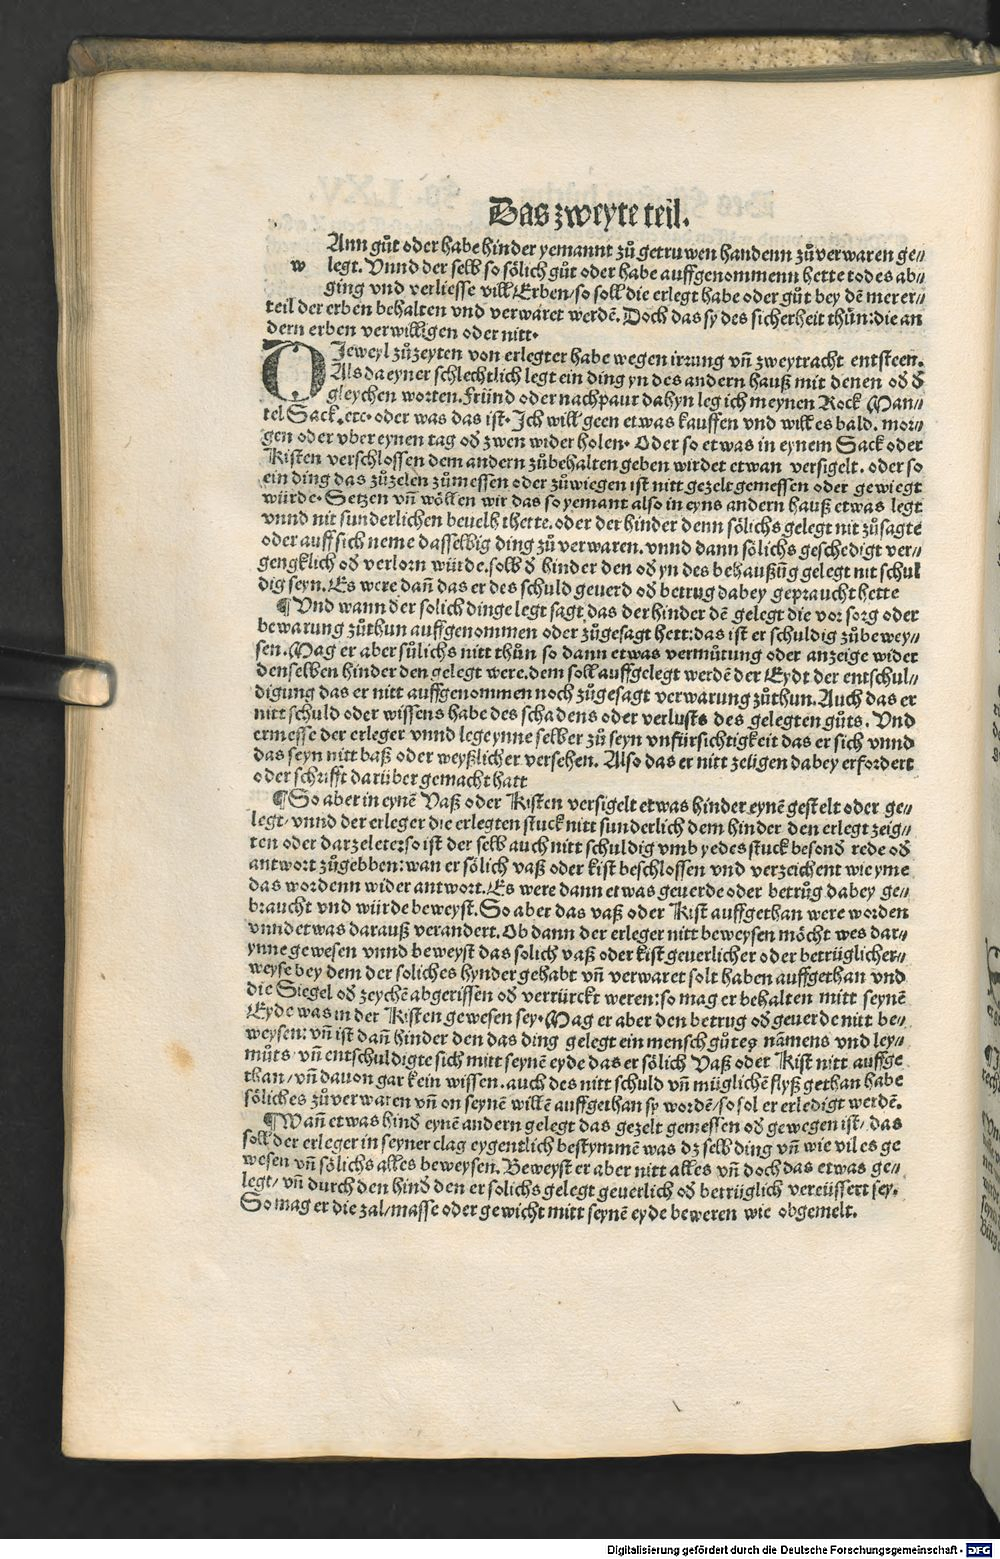 Das zweyte teil.
w Ann gůt oder habe hinder yemannt zů getruwen handenn zůverwaren ge⸗
legt. Vnnd der selb so sölich gůt oder habe auffgenommenn hette todes ab⸗
ging vnd verliesse vill Erben/so soll die erlegt habe oder gůt bey dē merer⸗
teil der erben behalten vnd verwaret werdē. Doch das sy des sicherheit thůn:die an
dern erben verwilligen oder nitt.
DJeweyl zůzeyten von erlegter habe wegen irrung vñ zweytracht entsteen.
Als da eyner schlechtlich legt ein ding yn des andern hauß mit denen od d
gleychen worten. Fründ oder nachpaur dahyn leg ich meynen Rock Man⸗
tel Sack. etc. oder was das ist. Ich will geen etwas kauffen vnd will es bald. mor⸗
gen oder vber eynen tag od zwen wider holen. Oder so etwas in eynem Sack oder
Kisten verschlossen dem andern zůbehalten geben wirdet etwan versigelt. oder so
ein ding das zůzelen zůmessen oder zůwiegen ist nitt gezelt gemessen oder gewiegt
würde. Setzen vñ wöllen wir das so yemant also in eyns andern hauß etwas legt
vnnd nit sunderlichen beuelh thette. oder der hinder denn sölichs gelegt nit zůsagte
oder auff sich neme dasselbig ding zů verwaren. vnnd dann sölichs geschedigt ver⸗
gengklich od verlorn würde. solb d hinder den od yn des behaußūg gelegt nit schul
dig seyn. Es were dañ das er des schuld geuerd od betrug dabey gepraucht hette
¶ Vnd wann der solich dinge legt sagt das der hinder dē gelegt die vor sorg oder
bewarung zůthun auffgenommen oder zůgesagt hett:das ist er schuldig zůbewey⸗
sen. Mag er aber sülichs nitt thůn so dann etwas vermůtung oder anzeige wider
denselben hinder den gelegt were. dem soll auffgelegt werdē der Eydt der entschul⸗
digung das er nitt auffgenommen noch zůgesagt verwarung zůthun. Auch das er
nitt schuld oder wissens habe des schadens oder verlusts des gelegten gůts. Vnd
ermesse der erleger vnnd lege ynne selber zů seyn vnfürsichtigkeit das er sich vnnd
das seyn nitt baß oder weyßlicher versehen. Also das er nitt zeügen dabey erfordert
oder schrifft darüber gemacht hatt
¶ So aber in eynē Vaß oder Kisten versigelt etwas hinder eynē gestelt oder ge⸗
legt/vnnd der erleger die erlegten stuck nitt sunderlich dem hinder den erlegt zeig⸗
ten oder darzelete:so ist der selb auch nitt schuldig vmb yedes stuck besond rede od
antwort zůgebben:wan er sölich vaß oder kist beschlossen vnd verzeichent wie yme
das wordenn wider antwort. Es were dann etwas geuerde oder betrůg dabey ge⸗
braucht vnd würde beweyst. So aber das vaß oder Kist auffgethan were worden
vnnd etwas darauß verandert. Ob dann der erleger nitt beweysen möcht wes dar⸗
ynne gewesen vnnd beweyst das solich vaß oder kist geuerlicher oder betrüglicher⸗
weyse bey dem der soliches hynder gehabt vñ verwaret solt haben auffgethan vnd
die Siegel od zeychē abgerissen od verrürckt weren:so mag er behalten mitt seynē
Eyde was in der Kisten gewesen sey. Mag er aber den betrug od geuerde nitt be⸗
weysen: vñ ist dañ hinder den das ding gelegt ein mensch gůtes nāmens vnd ley⸗
můts vñ entschuldigte sich mitt seynē eyde das er sölich Vaß oder Kist nitt auffge
than/vñ dauon gar kein wissen. auch des nitt schuld vñ müglichē flyß gethan habe
söliches zůverwaren vñ on seynē willē auffgethan sy wordē/so sol er erledigt werdē.
¶ Wañ etwas hind eynē andern gelegt das gezelt gemessen od gewegen ist/ das
soll der erleger in seyner clag eygentlich bestymmē was dz selb ding vñ wie vil es ge
wesen vñ sölichs alles beweysen. Beweyst er aber nitt alles vñ doch das etwas ge⸗
legt/ vñ durch den hind den er solichs gelegt geuerlich od betrüglich vereüssert sey.
So mag er die zal/masse oder gewicht mitt seynē eyde beweren wie obgemelt.
Digitalisierung gefördert durch die Deutsche Forschungsgemeinschaft - DFG